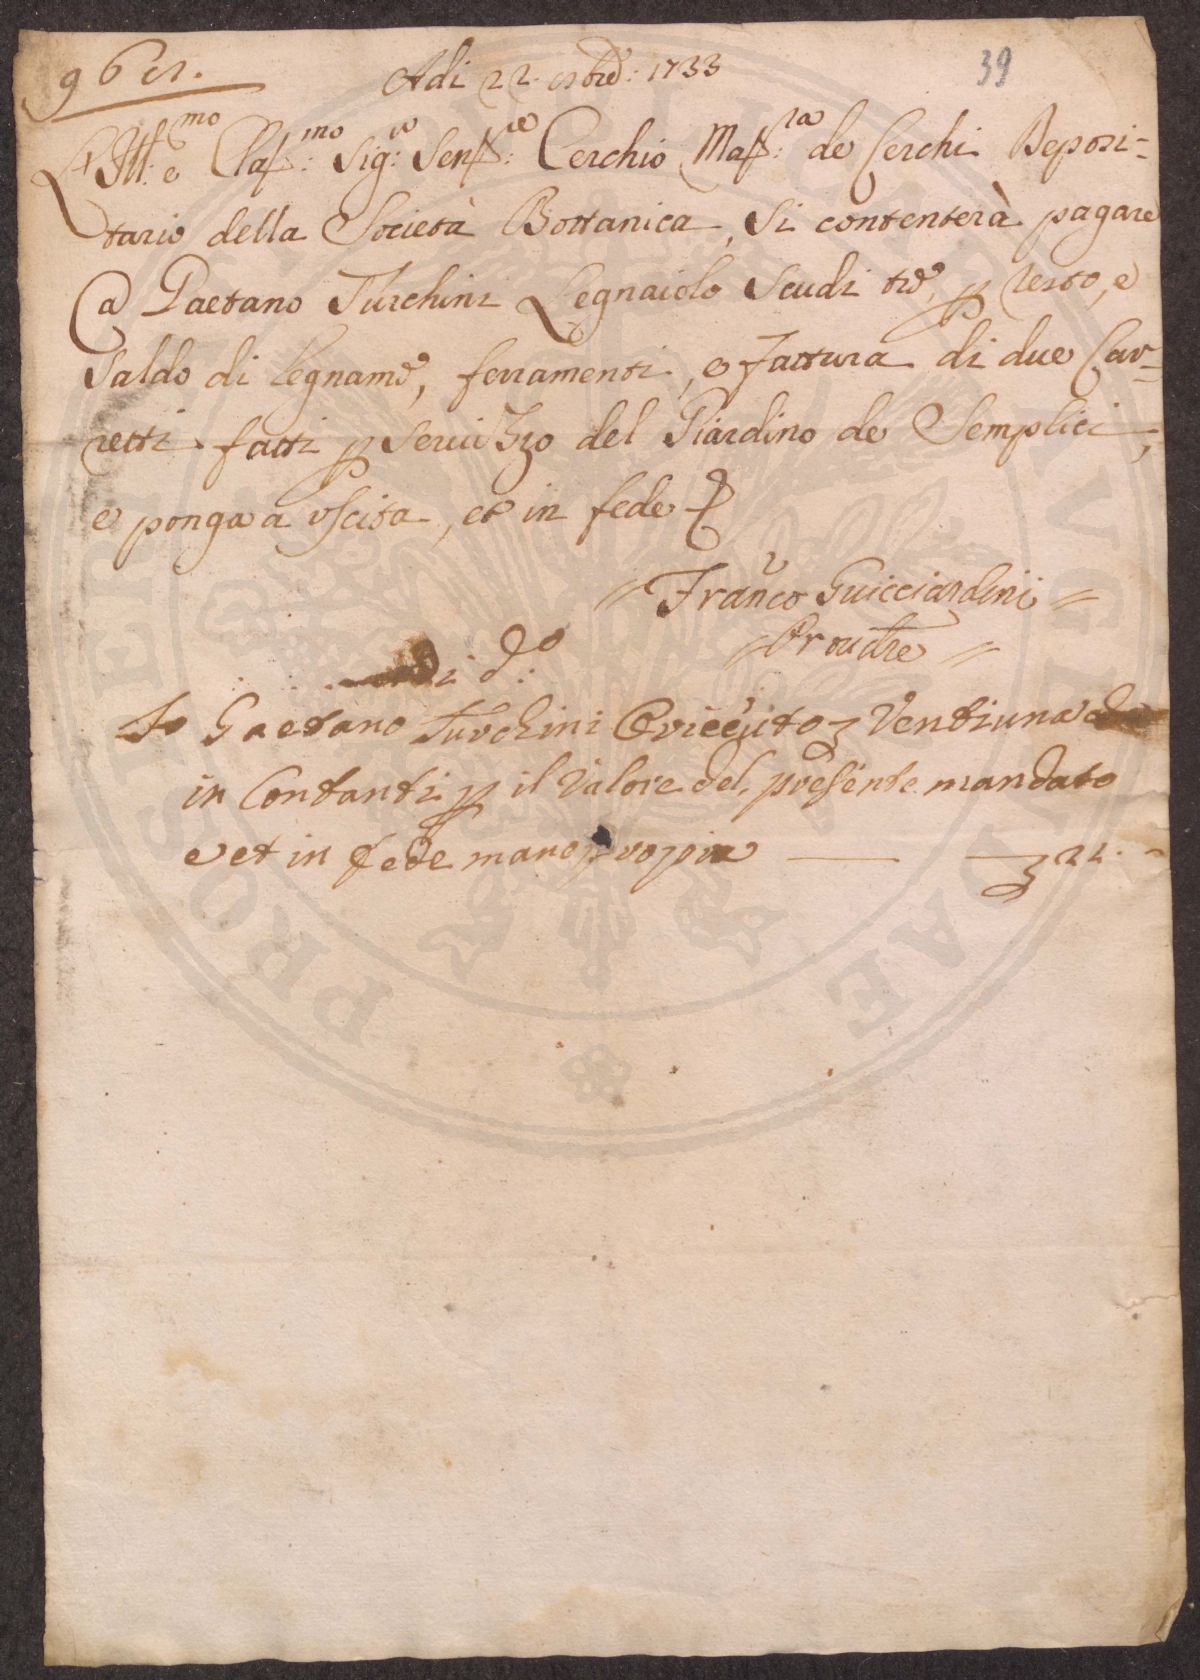 96 er.
Adi 22. 8bre: 1733
39
L'Ill: e Claß:mo Sig:e Senß:re Cerchio Maß:ia de Cerchi Deposi-
tario della Società Bottanica, Si contenterà pagare
a Gaetano Turchini Legnaiolo Scudi tre, p resto, e
Saldo di legname, ferramenti, e fattura di due Car-
retti fatti p Servizzo del Giardino de Semplici,
e ponga a uscita, et in fede
Franco Guicciardini
Provdre
di do:
Io Gaetano Turchini O riceuto Ventiuna
in Contanti p il Valore del, presente mandato
e et in fede mano propia 21. -
PROSPICIT